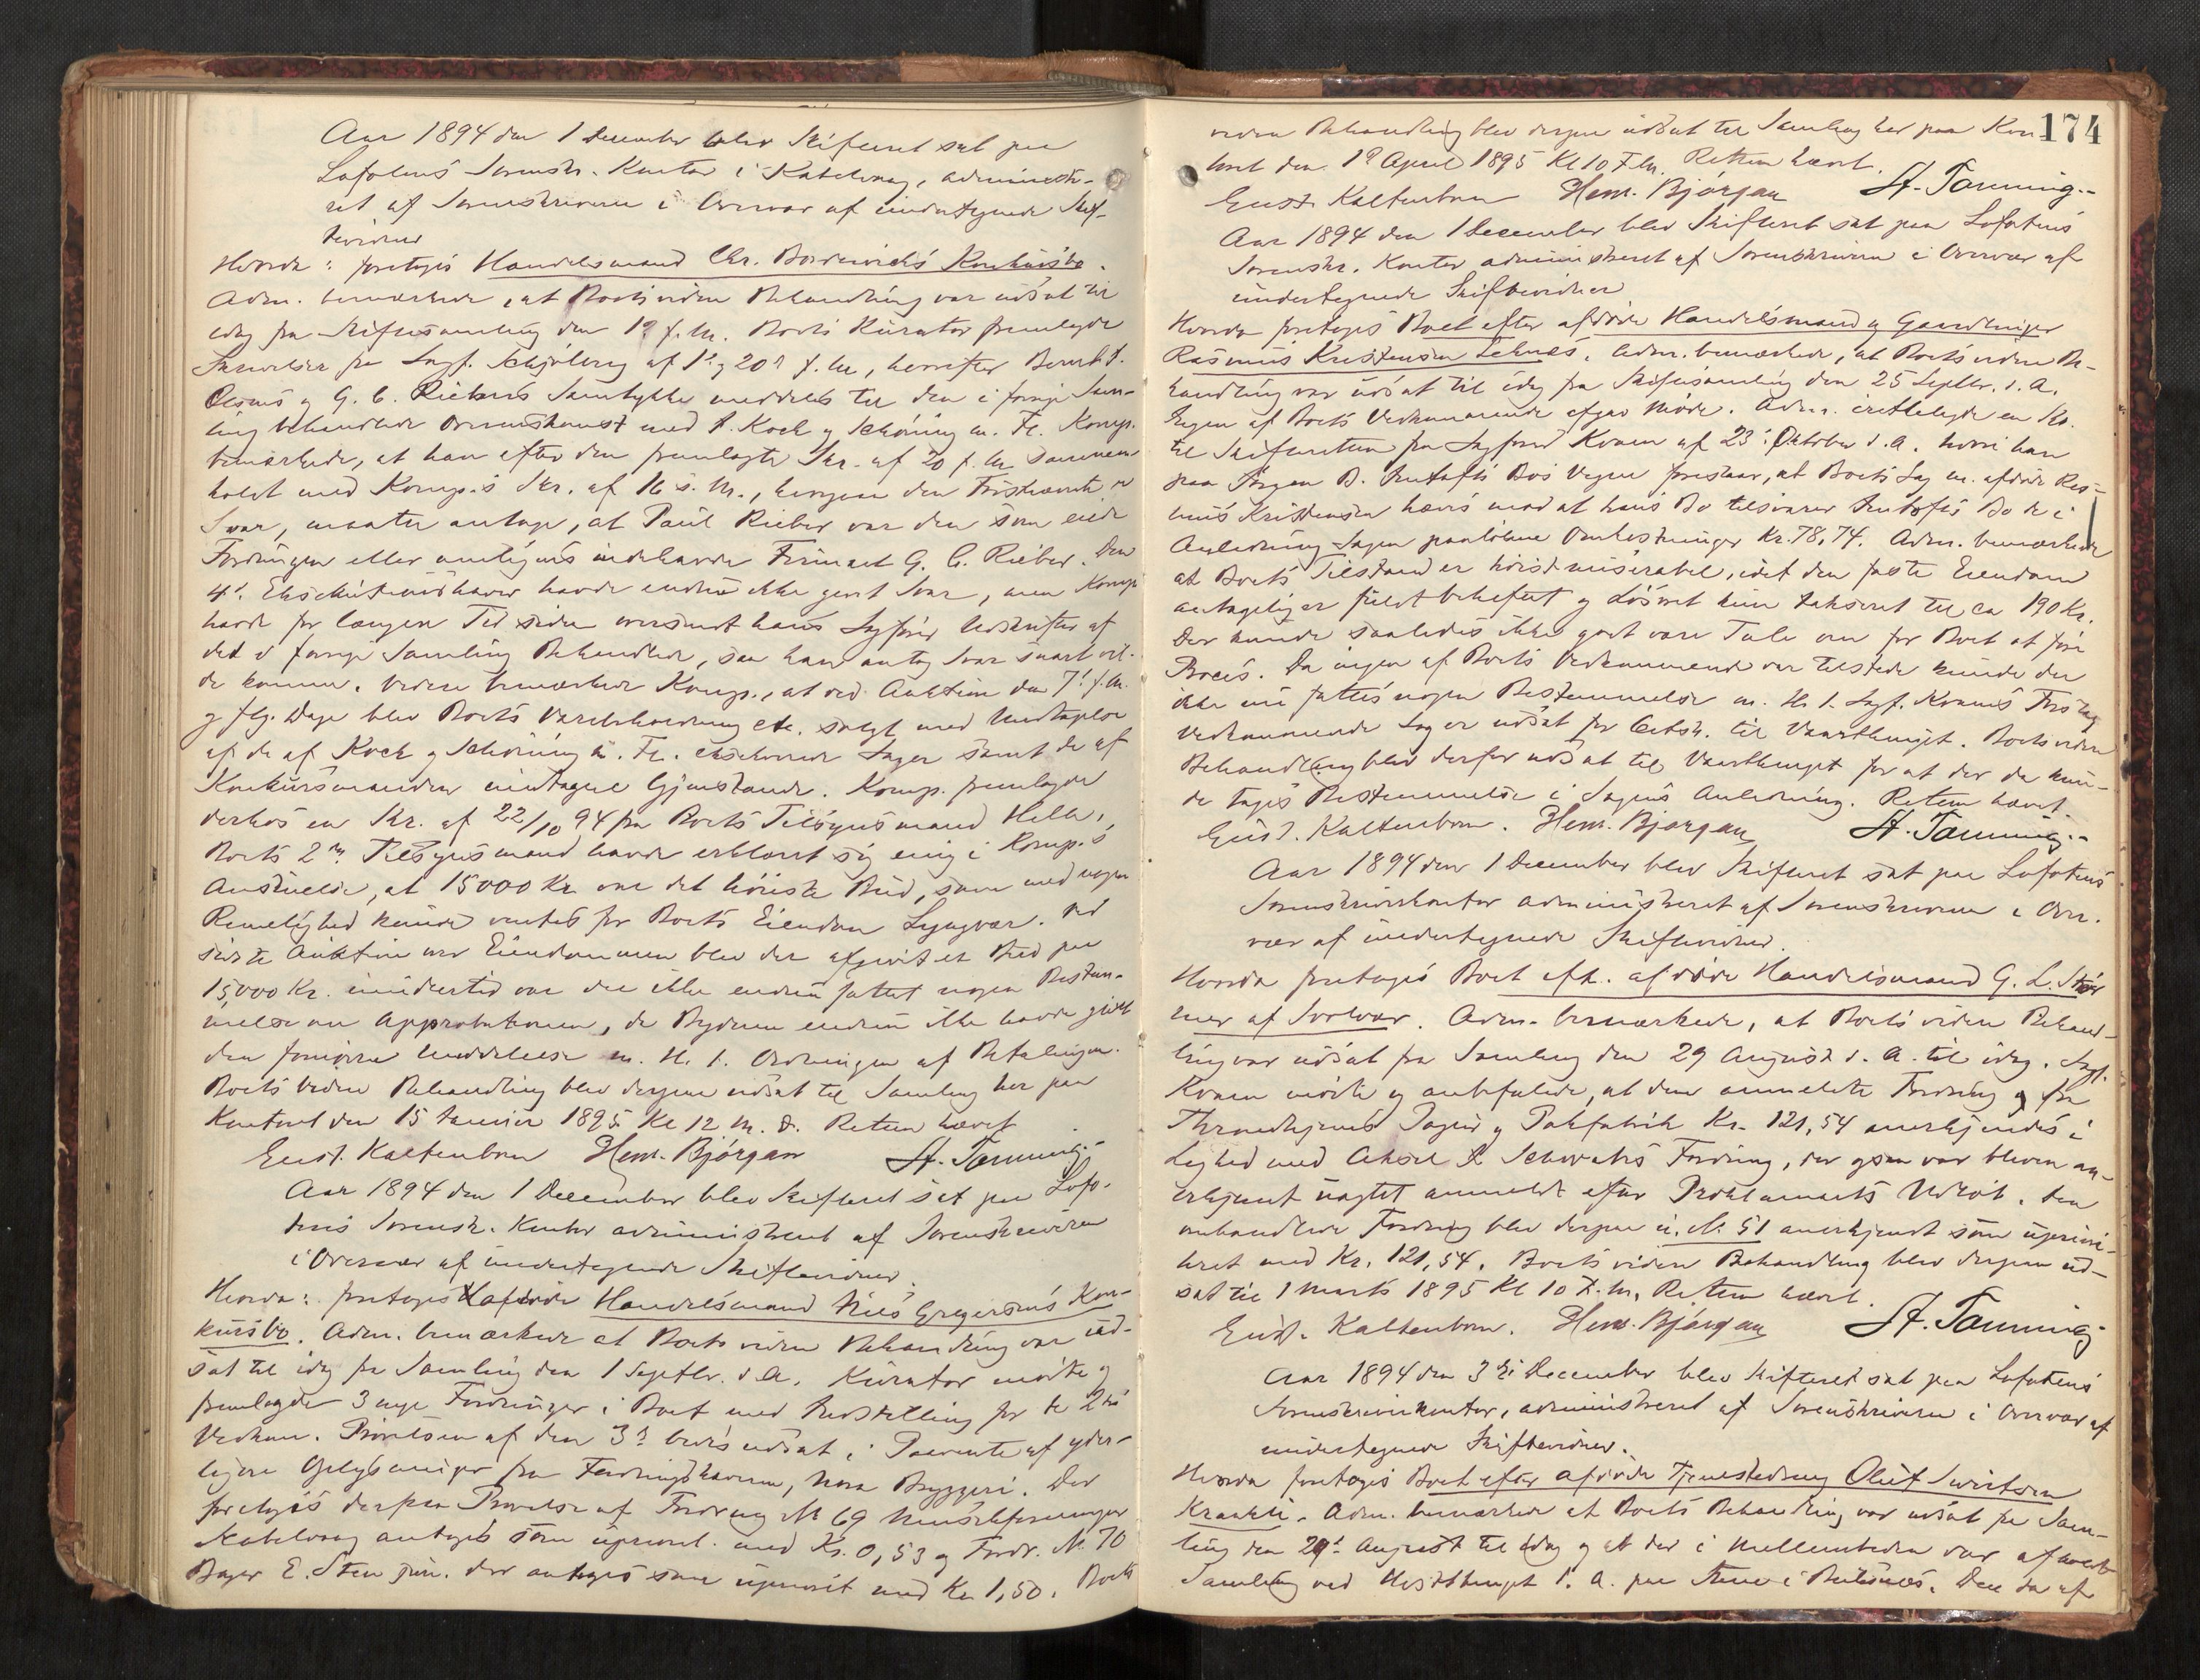 Aar 1894 den 1 December blev Skifteret sat paa
Lofotens Sorenskr. Kontor i Kabelvaag, administre-
ret af Sorenskriveren i Overvær af undertegnede Skif-
tevidner
Hvorda: foretoges Handelsmand Chr. Bordewichs Konkursbo.
Adm. bemærkede, at Boets videre Behandling var udsat til
idag fra Skiftesamling den 19 f. M. Boets Kurator fremlagde
Skrivelser fra Sagf. Schjelberg af 1' og 20' f. M., hvorefter Bernh. S.
og G. C. Riebers Samtykke meddeltes til den i forrige Sam-
ling behandlede Overenskomst med A. Koch og Schöning m. Fl. Komp.
bemærkede, at han efter den fremlagte Skr. af 20 f. M. sammen-
holdt med Komp.s Skr. af 16 s. M., hvorpaa den
Svar, maatte antage, at Paul Rieber var den som eiede
Fordringen eller muligens indehavde Firmaet G. C. Rieber. Den
4'. Ekseksutionshaver havde endnu ikke givet Svar, men Komp.
havde for længere Tid siden oversendt hans Sagfører Udskrifter af
det i forrige Samling Behandlede, saa han antog Svar snart vil-
de komme. Videre bemærkede Komp., at ved Auktion den 7' f. M.
og flg. Dage blev Boets Varebeholdning etc. solgt med Undtagelse
af de af Koch og Schöning m. Fl. ekseverede Sager samt de af
Konkursmanden undtagne Gjenstande. Komp. fremlagde
derhos en Skr. af 22/10 94 fra Boets Tilsynsmand Helle.
Boets 2den Tilsynsmand havde erklæret sig enig i Komp.s
Anskuelse, at 15000 Kr. var det høieste Bud, som med nogen
Rimelighed kunde ventes for Boets Eiendom Lyngvær. Ved
sidste Auktion over Eiendommen blev der afgivet et Bud paa
15,000 Kr. imidlertid var der ikke endnu fattet nogen Bestem-
melse om Approbationen, da Byderen endnu ikke havde givet
den fornødne Meddelelse m. H. t. Ordningen af Betalingen.
Boets videre Behandling blev derpaa udsat til Samling her paa
Kontoret den 15 Januar 1895 Kl 12 M. D. Retten hævet
Gust. Kaltenborn Hem. Bjørgan A. Tønning.
Aar 1894 den 1 December blev Skifteret sat paa Lofo-
tens Sorenskr. Kontor administreret af Sorenskriveren
i Overvær af undertegnede Skiftevidner.
Hvorda: foretoges afdøde Handelsmand Nils Gregersens Kon-
kursbo. Adm. bemærkede at Boets videre Behandling var ud-
sat til idag fra Samling den 1 Septbr. d. A. Kurator mødte og
fremlagde 3 nye Fordringer i Boet med Indstilling for de 2des
Vedkom. Prøvelsen af den 3' bedes udsat i Paavente af yder-
ligere Oplysninger fra Fordringshaveren, Nora Bryggeri. Der
foretoges derpaa Prøvelse af Fordring No 69
Kabelvaag antoges som uprivil. med Kr. 0,53 og Fordr. No 70
Bager E. Sten jun. der antoges som uprivit med Kr 1,50. Boets
174
videre Behandling blev derpaa udsat til Samling her paa Kon-
toret den 19 April 1895 Kl 10 F. M. Retten hævet.
Gust. Kaltenborn Hem. Bjørgan A. Tønning.
Aar 1894 den 1 December blev Skifteret sat paa Lofotens
Sorenskr. Kontor administreret af Sorenskriveren i Overvær af
undertegnede Skiftevidner
Hvorda foretoges Boet efter afdøde Handelsmand og Gaardbruger
Rasmus Kristensen Leknes. Adm. bemærkede, at Boets videre Be-
handling var udsat til idag fra Skiftesamling den 25 Septbr. d. A.
Ingen af Boets Vedkommende afgav Møde. Adm. irettelagde en Skr.
til Skifteretten fra Sagfører Kvam af 23' Oktober d. A. hvori han
paa Jørgen B. Bos Vegne foreslaar, at Boets Sag m. afdøde Ras-
mus Kristensen hæves mod at hans Bo tilsvarer Bo de i
Anledning Sagen paaløbne Omkostninger Kr. 78,74. Adm. bemærkede
at Boets Tilstand er høist miserabel, idet den faste Eiendom
antagelig er fuldt beheftet og Løsøret kun takseret til ca 190 Kr.
Der kunde saaledes ikke godt være Tale om for Boet at føre
Proces. Da ingen af Boets Vedkommende var tilstede kunde der
ikke nu fattes nogen Bestemmelse m. H. t. Sagf. Kvams Forslag
Vedkommende Sag er udsat fra til Vaarthinget. Boets videre
Behandling blev derfor udsat til Vaarthinget for at der da kun-
de tages Bestemmelse i Sagens Anledning. Retten hævet.
Gust. Kaltenborn. Hem. Bjørgan A. Tønning.
Aar 1894 den 1 December blev Skifteret sat paa Lofotens
Sorenskriverkontor administreret af Sorenskriveren i Over-
vær af undertegnede Skiftevidner.
Hvorda foretoges Boet eft. afdøde Handelsmand G. L. Stør
mer af Svolvær. Adm. bemærkede, at Boets videre Behand-
ling var udsat fra Samling den 29 August d. A. til idag. Sagf.
Kvam mødte og anbefalede, at den anmeldte Fordring fra
Throndhjems Papir og Papfabrik Kr. 121,54 anerkjendes i
Lighed med Aksel R Schwatrs Fordring, der ogsaa var bleven an-
erkjendt uagtet anmeldt efter Proklamaets Udløb. Den
omhandlede Fordring blev derpaa u. No. 51 anerkjendt som uprivi-
leret med Kr. 121,54. Boets videre Behandling blev derpaa ud-
sat til 1 Marts 1895 Kl 10 F. M. Retten hævet.
Gust. Kaltenborn. Hem. Bjørgan A. Tønning
Aar 1894 den 3die December blev Skifteret sat paa Lofotens
Sorenskriverkontor, administreret af Sorenskriveren i Overvær af
undertegnede Skiftevidner.
Hvorda foretoges Boet efter afdøde Tjenestedreng Oluf Sivertsen
Krankli. Adm. bemærkede at Boets Behandling var udsat fra Sam-
ling den 29' August til idag og at der i Mellemtiden var afholdt
Samling ved Høstthinget d. A. paa Stene i Buksnes. Den da af